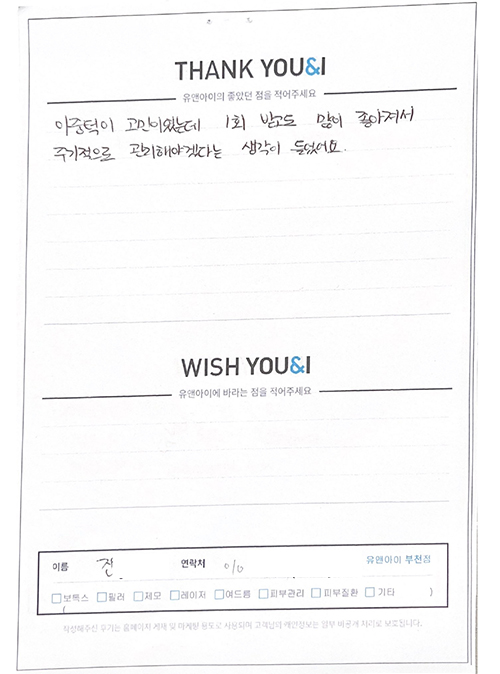 THANK YOU&I
유앤아이의 좋았던 점을 적어주세요
이중턱이 고민이었는데 1회 받고도 많이 좋아져서
주기적으로 관리해야겠다는 생각이 들었어요.
WISH YOU&I
유앤아이에 바라는 점을 적어주세요
이름 전 연락처 010 유앤아이 부천점
□보톡스 □필러 □제모 □레이저 □여드름 □피부관리 □피부질환 □기타 )
(
작성해주신 후기는 홈페이지 게재 및 마케팅 용도로 사용되며 고객님의 개인정보는 일부 비공개 처리로 보호됩니다.